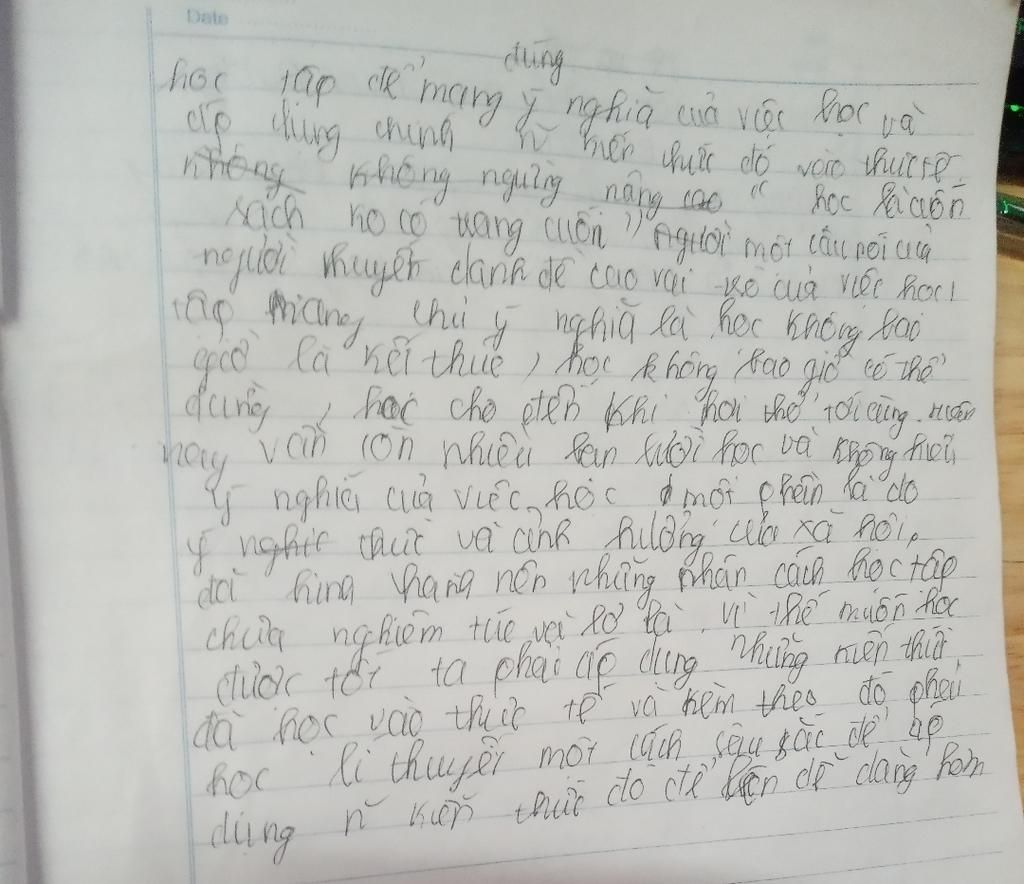 Date
đúng
học tập để mang ý nghĩa của việc học và
áp dụng chính n~ kiến thức đó vào thực tế.
không không ngừng nâng cao " học là cuốn
sách ko có trang cuối" Người một câu nói của
người khuyết danh đề cao vai trò của việc học
tập mang chủ ý nghĩa là học không bao
giờ là kết thúc, học không bao giờ có thể
dừng, học cho đến khi hơi thở tới cùng.
nay vẫn còn nhiều bạn lười học và không hiểu
ý nghĩa của việc học một phần là do
ý nghĩ thức và ảnh hưởng của xã hội,
đã hình thành nên những nhân cách học tập
chưa nghiêm túc và lơ là. vì thế muốn học
được tốt ta phải áp dụng những kiến thức
đã học vào thực tế và kèm theo đó phải
học lí thuyết một cách sâu sắc để áp
dụng n~ kiến thức đó để dễ dàng hơn